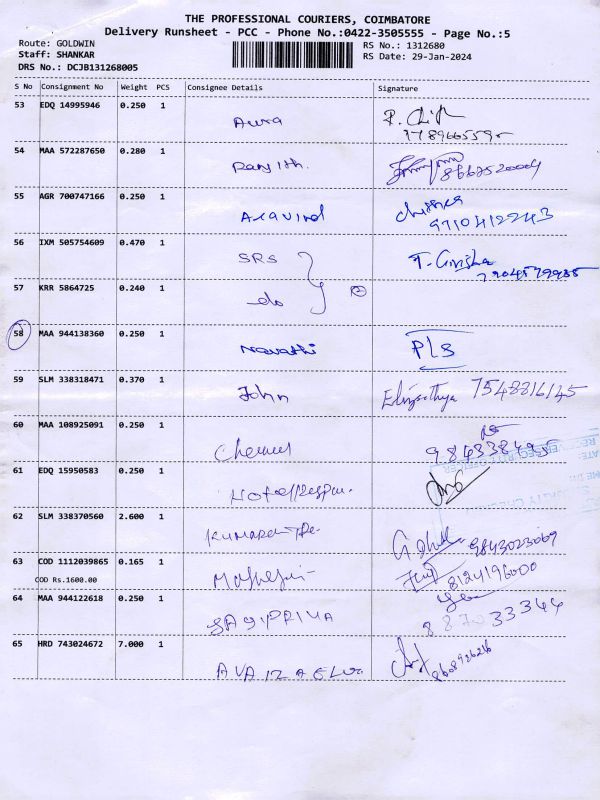 THE PROFESSIONAL COURIERS, COIMBATORE
Delivery Runsheet - PCC - Phone No.:0422-3505555 - Page No.:5
Route: GOLDWIN
RS No.: 1312680
Staff: SHANKAR
RS Date: 29-Jan-2024
DRS No.: DCJB131268005
S No Consignment No Weight PCS Consignee Details Signature
53 EDQ 14995946 0.250 1
54 MAA 572287650 0.280 1 Ranjith.
8667520004
55 AGR 700747166 0.250 1 Aravind
9710412243
56 IXM 505754609 0.470 1 SRS T. Girisha
7904579985
57 KRR 5864725 0.240 1 do
58 MAA 944138360 0.250 1 Revathi PLS
59 SLM 338318471 0.370 1 John 7548816145
60 MAA 108925091 0.250 1
61 EDQ 15950583 0.250 1
62 SLM 338370560 2.600 1 9843023069
63 COD 1112039865 0.165 1 8124196000
COD Rs.1600.00
64 MAA 944122618 0.250 1 SAGIPRIYA
65 HRD 743024672 7.000 1